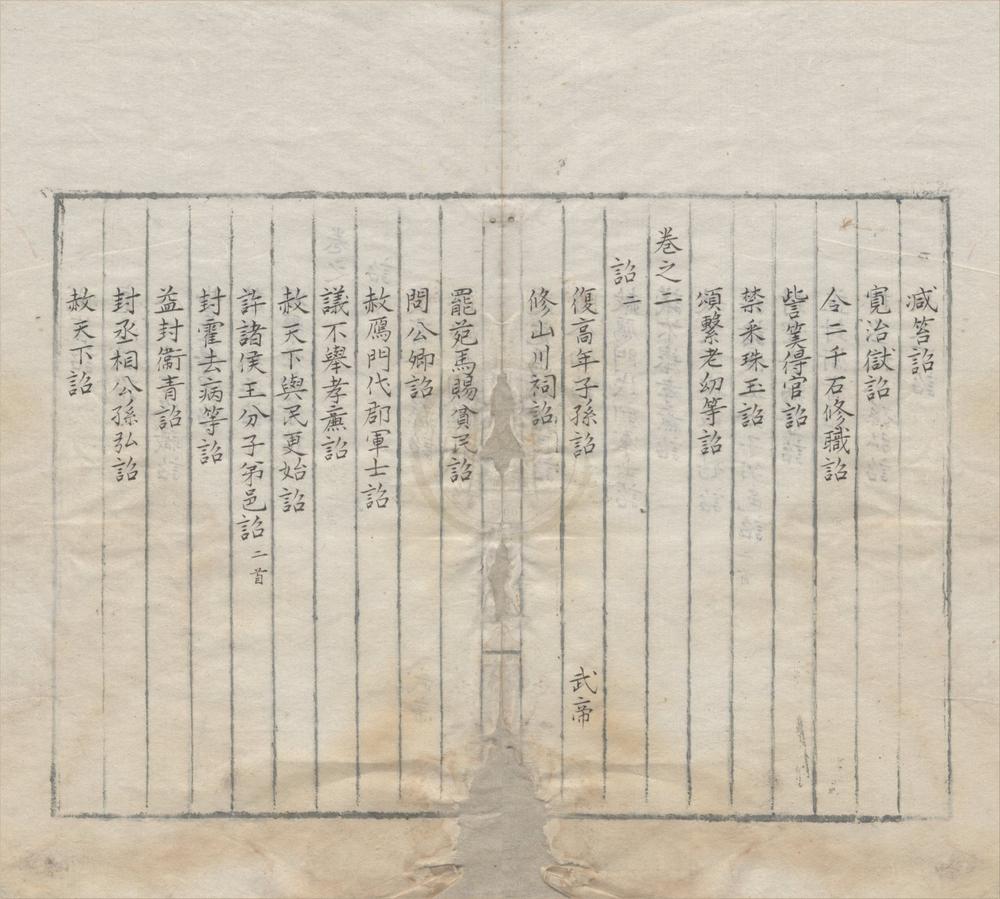 减笞詔
寛治獄詔
令二千石修職詔
訾筭得官詔
禁采珠玉詔
頌繫老幼等詔
卷之二
詔二
復高年子孫詔 武帝
修山川祠詔
罷苑馬賜貧民詔
問公卿詔
赦鴈門代郡軍士詔
議不舉孝廉詔
赦天下與民更始詔
許諸侯王分子弟邑詔二首
封霍去病等詔
益封衛青詔
封丞相公孫弘詔
赦天下詔